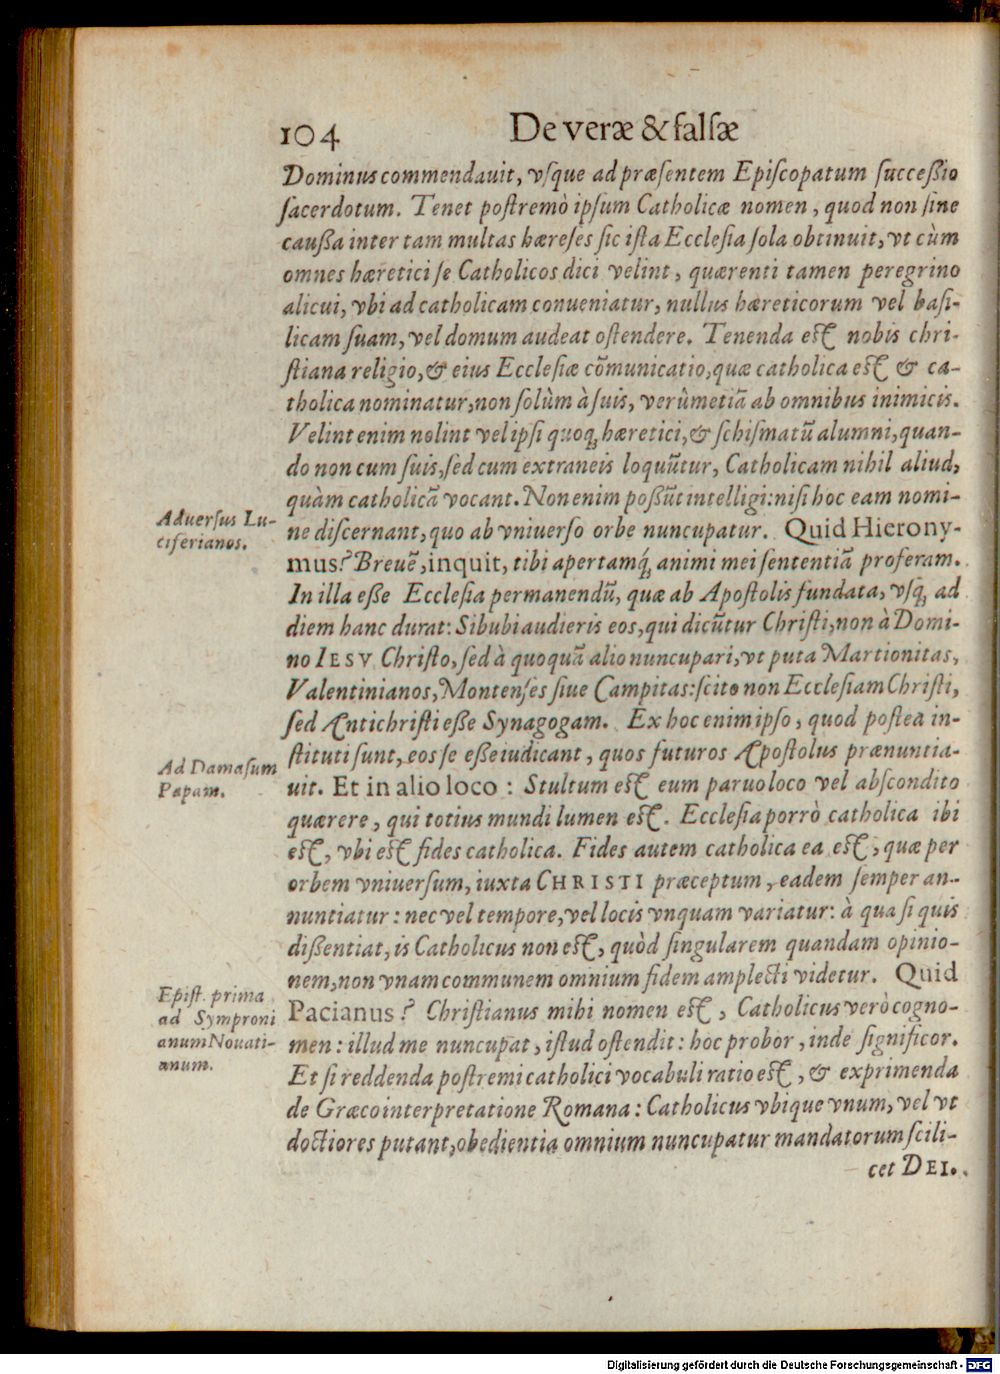 104 De veræ & falſæ
Dominus commendauit, vſque ad præſentem Epiſcopatum ſucceßio
ſacerdotum. Tenet poſtremò ipſum Catholicæ nomen, quod non ſine
cauſſa inter tam multas hæreſes ſic iſta Eccleſia ſola obtinuit, vt cùm
omnes hæretici ſe Catholicos dici velint, quærenti tamen peregrino
alicui, vbi ad catholicam conueniatur, nullus hæreticorum vel baſi-
licam ſuam, vel domum audeat oſtendere. Tenenda eſt nobis chri-
ſtiana religio, & eius Eccleſiæ cõmunicatio, quæ catholica eſt & ca-
tholica nominatur, non ſolùm à ſuis, verùmetiã ab omnibus inimicis.
Velint enim nolint vel ipſi quoq; hæretici, & ſchiſmatũ alumni, quan-
do non cum ſuis, ſed cum extraneis loquũtur, Catholicam nihil aliud,
quàm catholicã vocant. Non enim poßũt intelligi: niſi hoc eam nomi-
Aduerſus Lu-
ciferianos.
ne diſcernant, quo ab vniuerſo orbe nuncupatur. Quid Hierony-
mus? Breuẽ, inquit, tibi apertamq́; animi mei ſententiã proferam.
In illa eße Eccleſia permanendũ, quæ ab Apoſtolis fundata, vſq; ad
diem hanc durat: Sibubi audieris eos, qui dicũtur Chriſti, non à Domi-
no IESV Chriſto, ſed à quoquã alio nuncupari, vt puta Martionitas,
Valentinianos, Montenſes ſiue Campitas: ſcito non Eccleſiam Chriſti,
ſed Antichriſti eße Synagogam. Ex hoc enim ipſo, quod poſtea in-
ſtituti ſunt, eos ſe eße iudicant, quos futuros Apoſtolus prænuntia-
Ad Damaſum
Papam.
uit. Et in alio loco: Stultum eſt eum paruo loco vel abſcondito
quærere, qui totius mundi lumen eſt. Eccleſia porrò catholica ibi
eſt, vbi eſt fides catholica. Fides autem catholica ea eſt, quæ per
orbem vniuerſum, iuxta CHRISTI præceptum, eadem ſemper an-
nuntiatur: nec vel tempore, vel locis vnquam variatur: à qua ſi quis
dißentiat, is Catholicus non eſt, quòd ſingularem quandam opinio-
nem, non vnam communem omnium fidem amplecti videtur. Quid
Epiſt. prima
ad Symproni
anum Nouati-
anum.
Pacianus? Chriſtianus mihi nomen eſt, Catholicus verò cogno-
men: illud me nuncupat, iſtud oſtendit: hoc probor, inde ſignificor.
Et ſi reddenda poſtremi catholici vocabuli ratio eſt, & exprimenda
de Græco interpretatione Romana: Catholicus vbique vnum, vel vt
doctiores putant, obedientia omnium nuncupatur mandatorum ſcili-
cet DEI.
Digitalisierung gefördert durch die Deutsche Forschungsgemeinschaft - DFG